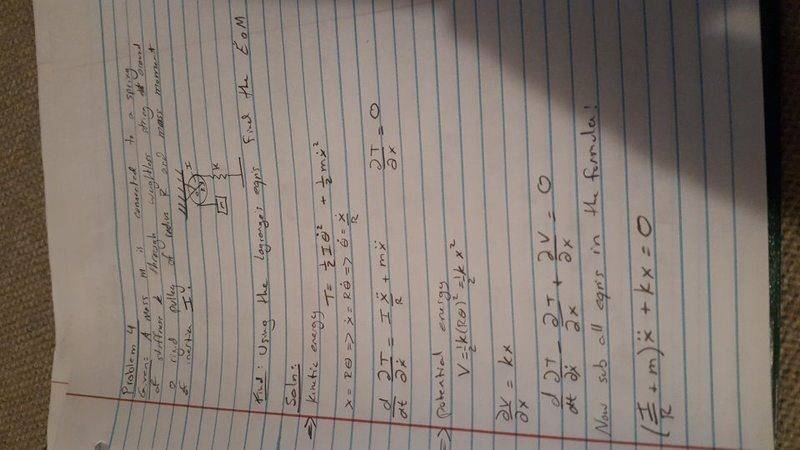 Problem 4
Given: A mass m is connected to a spring
of stiffness k through weightless string around
a rigid pulley of radius R and mass moment
of inertia I
I
m
k
Find: Using the lagrange's eqn's find the EOM
Soln:
=> kinetic energy T = 1/2 I θ̇² + 1/2 m ẋ²
x = Rθ => ẋ = Rθ̇ => θ̇ = ẋ/R
d/dt ∂T/∂ẋ = I ẍ/R + mẍ ∂T/∂x = 0
=> potential energy
V = 1/2 k(Rθ)² = 1/2 k x²
∂V/∂x = kx
d/dt ∂T/∂ẋ - ∂T/∂x + ∂V/∂x = 0
Now sub all eqn's in the formula!
(I/R + m)ẍ + kx = 0